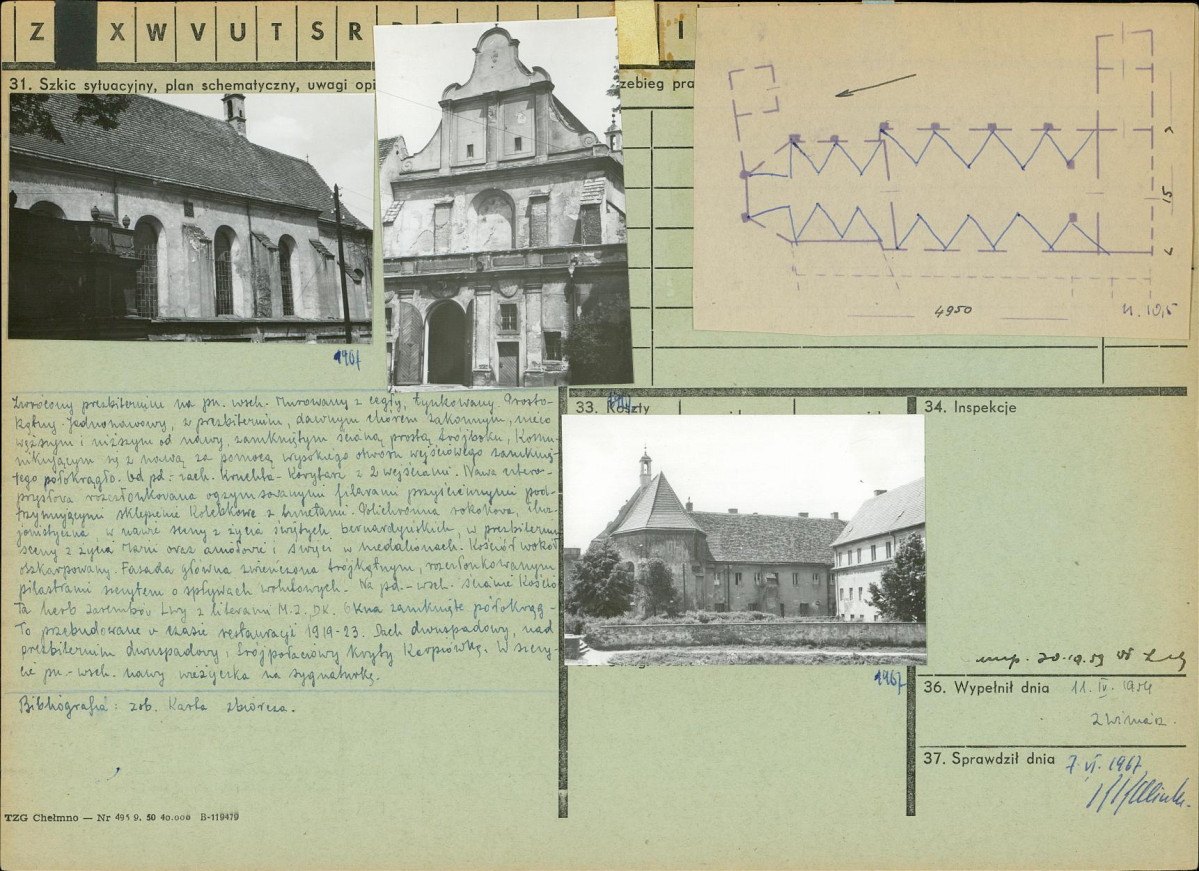 Z X W V U T S R P O I
31. Szkic sytuacyjny, plan schematyczny, uwagi opi
zebieg pra
4950
15
1967
Zwrócony prezbiterium na pn.-wsch. Murowany z cegły, tynkowany. Prosto-
kątny. Jednonawowy, z prezbiterium, dawnym chórem zakonnym, nieco
węższym i niższym od nawy, zamkniętym ścianą prostą trójboku, komu-
nikującym się z nawą za pomocą wysokiego otworu wejściowego zamknię-
tego półokrągło. Od pd.-zach. Kruchta-Korytarz z 2 wejściami. Nawa cztero-
przęsłowa rozczłonkowana ogzymsowanymi filarami przyściennymi pod-
trzymującymi sklepienie kolebkowe z lunetami. Polichromia rokokowa, iluz-
jonistyczna, w nawie sceny z życia świętych bernardyńskich, w prezbiterium
sceny z życia Marii oraz aniołowie i święci w medalionach. Kościół wokół
oszkarpowany. Fasada główna zwieńczona trójkątnym, rozczłonkowanym
pilastrami szczytem o spływach wolutowych. Na pd.-wsch. ścianie Kościo-
ła herb Zarembów Lwy z literami M.Z.DK. Okna zamknięte półokrąg-
ło przebudowane w czasie restauracji 1919-23. Dach dwuspadowy, nad
prezbiterium dwuspadowy i trójpołaciowy kryty Karpiówką. W szczy-
cie pn.-wsch. nawy wieżyczka na sygnaturkę.
Bibliografia: zob. Karta zbiorcza.
TZG Chełmno — Nr 495 9. 50 40.000 B-119479
33. Koszty
1967
34. Inspekcje
insp. 20.10.59
36. Wypełnił dnia 11. IV.
37. Sprawdził dnia 7. VI. 1967